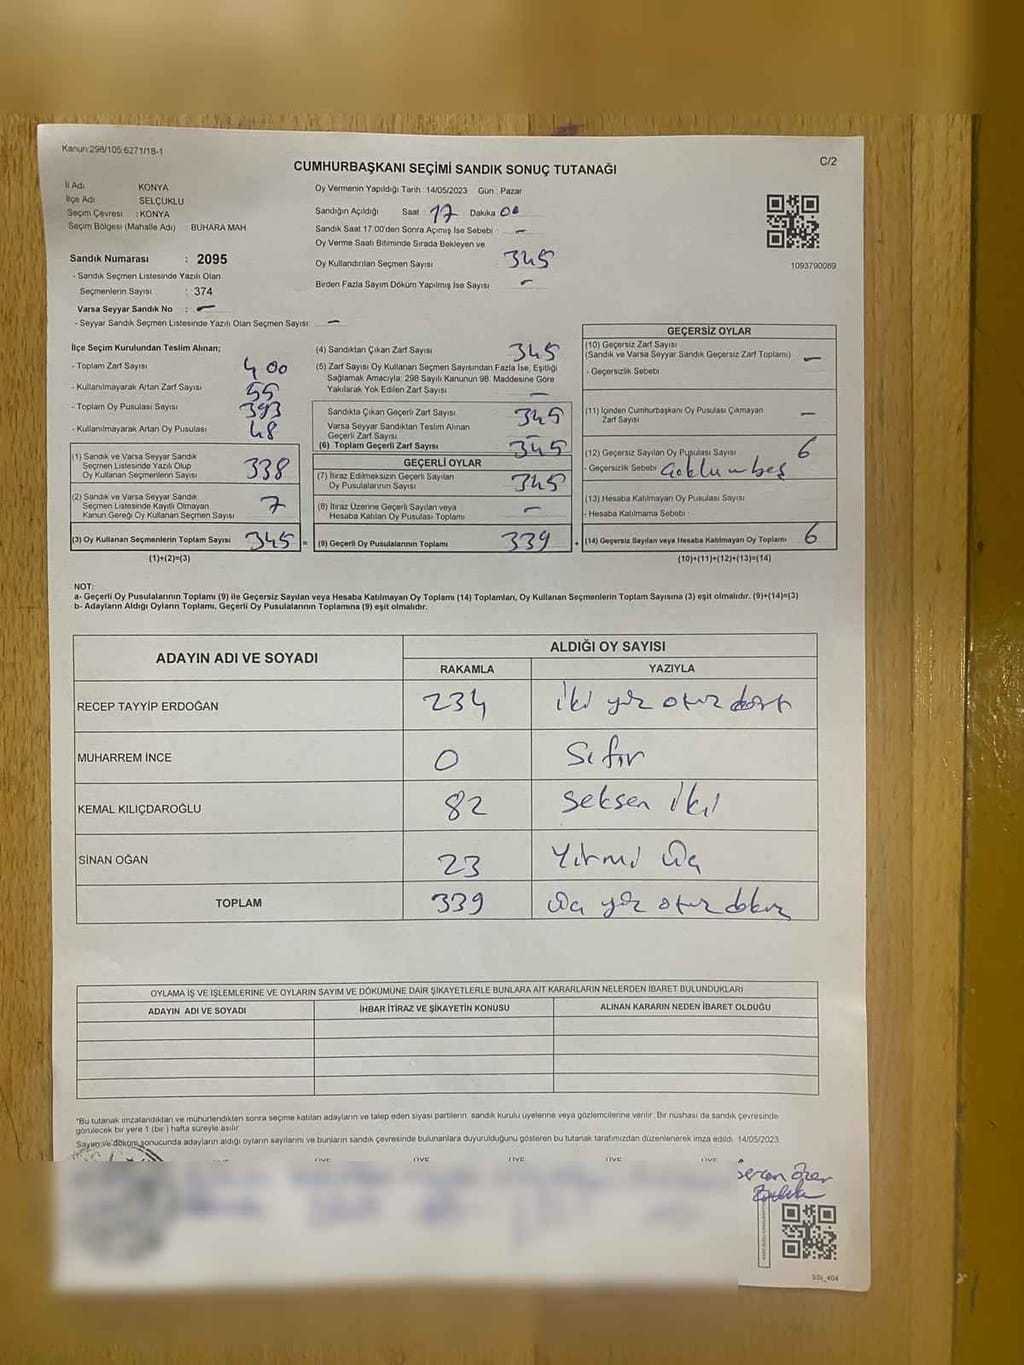 Kanun:298/105:6271/18-1
C/2
CUMHURBAŞKANI SEÇİMİ SANDIK SONUÇ TUTANAĞI
İl Adı KONYA
İlçe Adı SELÇUKLU
Seçim Çevresi : KONYA
Seçim Bölgesi (Mahalle Adı) : BUHARA MAH
Sandık Numarası : 2095
- Sandık Seçmen Listesinde Yazılı Olan
Seçmenlerin Sayısı : 374
Varsa Seyyar Sandık No : -
- Seyyar Sandık Seçmen Listesinde Yazılı Olan Seçmen Sayısı: -
Oy Vermenin Yapıldığı Tarih : 14/05/2023 Gün : Pazar
Sandığın Açıldığı Saat : 17 Dakika 00
Sandık Saat 17:00'den Sonra Açımış İse Sebebi : -
Oy Verme Saati Bitiminde Sırada Bekleyen ve
Oy Kullandırılan Seçmen Sayısı 345
Birden Fazla Sayım Döküm Yapılmış İse Sayısı -
1093790089
İlçe Seçim Kurulundan Teslim Alınan;
- Toplam Zarf Sayısı 400
- Kullanılmayarak Artan Zarf Sayısı 55
- Toplam Oy Pusulası Sayısı 393
- Kullanılmayarak Artan Oy Pusulası 48
(1) Sandık ve Varsa Seyyar Sandık
Seçmen Listesinde Yazılı Olup
Oy Kullanan Seçmenlerin Sayısı 338
(2) Sandık ve Varsa Seyyar Sandık
Seçmen Listesinde Kayıtlı Olmayan
Kanun Gereği Oy Kullanan Seçmen Sayısı 7
(3) Oy Kullanan Seçmenlerin Toplam Sayısı 345 =
(1)+(2)=(3)
(4) Sandıktan Çıkan Zarf Sayısı 345
(5) Zarf Sayısı Oy Kullanan Seçmen Sayısından Fazla İse, Eşitliği
Sağlamak Amacıyla; 298 Sayılı Kanunun 98. Maddesine Göre
Yakılarak Yok Edilen Zarf Sayısı -
Sandıkta Çıkan Geçerli Zarf Sayısı 345
Varsa Seyyar Sandıktan Teslim Alınan
Geçerli Zarf Sayısı -
(6) Toplam Geçerli Zarf Sayısı 345
GEÇERLİ OYLAR
(7) İtiraz Edilmeksizin Geçerli Sayılan
Oy Pusulalarının Sayısı 345
(8) İtiraz Üzerine Geçerli Sayılan veya
Hesaba Katılan Oy Pusulası Toplamı -
(9) Geçerli Oy Pusulalarının Toplamı 339 +
GEÇERSİZ OYLAR
(10) Geçersiz Zarf Sayısı
(Sandık ve Varsa Seyyar Sandık Geçersiz Zarf Toplamı) -
- Geçersizlik Sebebi
(11) İçinden Cumhurbaşkanı Oy Pusulası Çıkmayan
Zarf Sayısı -
(12) Geçersiz Sayılan Oy Pusulası Sayısı 6
- Geçersizlik Sebebi
(13) Hesaba Katılmayan Oy Pusulası Sayısı
- Hesaba Katılmama Sebebi
(14) Geçersiz Sayılan veya Hesaba Katılmayan Oy Toplamı 6
(10)+(11)+(12)+(13)=(14)
NOT:
a- Geçerli Oy Pusulalarının Toplamı (9) ile Geçersiz Sayılan veya Hesaba Katılmayan Oy Toplamı (14) Toplamları, Oy Kullanan Seçmenlerin Toplam Sayısına (3) eşit olmalıdır. (9)+(14)=(3)
b- Adayların Aldığı Oyların Toplamı, Geçerli Oy Pusulalarının Toplamına (9) eşit olmalıdır.
ADAYIN ADI VE SOYADI ALDIĞI OY SAYISI
RAKAMLA YAZIYLA
RECEP TAYYİP ERDOĞAN 234 iki yüz otuz dört
MUHARREM İNCE 0 Sıfır
KEMAL KILIÇDAROĞLU 82 Seksen İki
SİNAN OĞAN 23 Yirmi Üç
TOPLAM 339 Üç yüz otuz dokuz
OYLAMA İŞ VE İŞLEMLERİNE VE OYLARIN SAYIM VE DÖKÜMÜNE DAİR ŞİKAYETLERLE BUNLARA AİT KARARLARIN NELERDEN İBARET BULUNDUKLARI
ADAYIN ADI VE SOYADI İHBAR İTİRAZ VE ŞİKAYETİN KONUSU ALINAN KARARIN NEDEN İBARET OLDUĞU
*Bu tutanak imzalandıktan ve mühürlendikten sonra seçime katılan adayların ve talep eden siyasi partilerin, sandık kurulu üyelerine veya gözlemcilerine verilir. Bir nüshası da sandık çevresinde
görülecek bir yere 1 (bir) hafta süreyle asılır.
Sayım ve döküm sonucunda adayların aldığı oyların sayılarını ve bunların sandık çevresinde bulunanlara duyurulduğunu gösteren bu tutanak tarafımızdan düzenlenerek imza edildi. 14/05/2023
ÜYE ÜYE ÜYE ÜYE ÜYE
Sercan Özer
SSİ_404